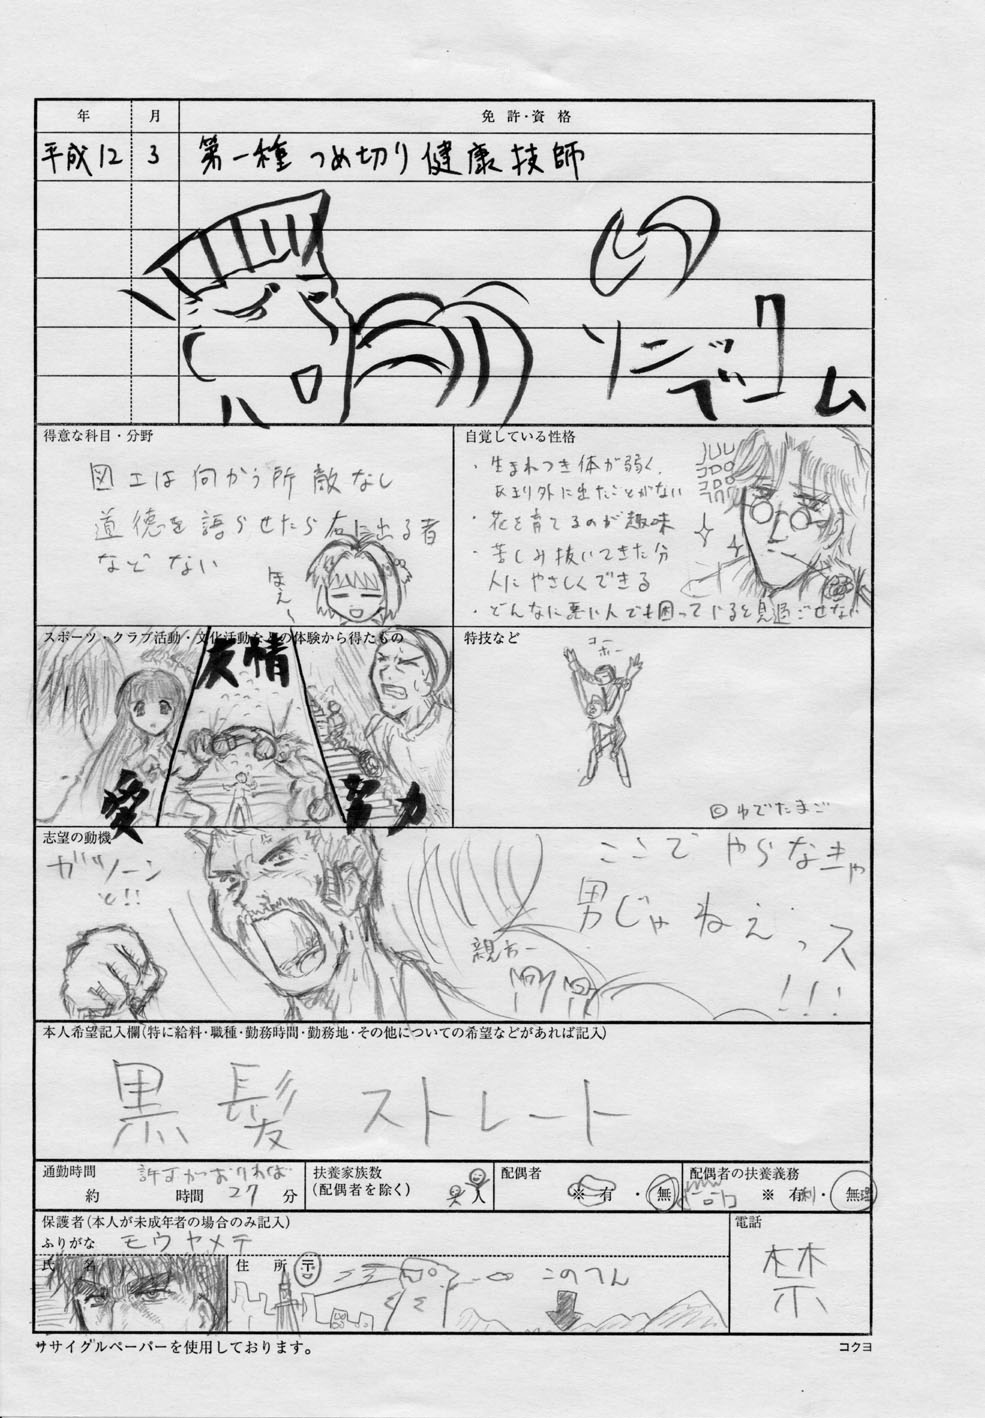 年 月 免許・資格
平成12 3 第一種 つめ切り健康技師
ソニックブーム
得意な科目・分野
図工は向かう所敵なし
道徳を語らせたら右に出る者
などない
ほぇ〜
自覚している性格
・生まれつき体が弱く、
あまり外に出たことがない
・花を育てるのが趣味
・苦しみ抜いてきた分
人にやさしくできる
・どんなに悪い人でも困っていると見過ごせない
スポーツ・クラブ活動・文化活動などの体験から得たもの
友情
愛
努力
特技など
コー
ホー
©ゆでたまご
志望の動機
ガツーン
と!!
ここで やらなきゃ
男じゃねえっス
!!!
親方ー
本人希望記入欄(特に給料・職種・勤務時間・勤務地・その他についての希望などがあれば記入)
黒髪 ストレート
通勤時間 許すがおりれば
約 時間 27 分
扶養家族数
(配偶者を除く) 人
配偶者
※ 有 ・ 無
配偶者の扶養義務
※ 有 ・ 無
保護者(本人が未成年者の場合のみ記入)
ふりがな モウヤメテ
氏 名
住 所 〒
このへん
電話
禁
ササイグルペーパーを使用しております。
コクヨ